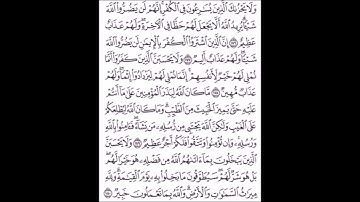 وَلَا يَحْزُنكَ الَّذِينَ يُسَارِعُونَ فِي الْكُفْرِ إِنَّهُمْ لَن يَضُرُّوا اللَّهَ
شَيْئًا يُرِيدُ اللَّهُ أَلَّا يَجْعَلَ لَهُمْ حَظًّا فِي الْآخِرَةِ وَلَهُمْ عَذَابٌ
عَظِيمٌ ١٧٦ إِنَّ الَّذِينَ اشْتَرَوُا الْكُفْرَ بِالْإِيمَانِ لَن يَضُرُّوا اللَّهَ
شَيْئًا وَلَهُمْ عَذَابٌ أَلِيمٌ ١٧٧ وَلَا يَحْسَبَنَّ الَّذِينَ كَفَرُوا أَنَّمَا
نُمْلِي لَهُمْ خَيْرٌ لِّأَنفُسِهِمْ إِنَّمَا نُمْلِي لَهُمْ لِيَزْدَادُوا إِثْمًا وَلَهُمْ
عَذَابٌ مُّهِينٌ ١٧٨ مَّا كَانَ اللَّهُ لِيَذَرَ الْمُؤْمِنِينَ عَلَىٰ مَا أَنتُمْ
عَلَيْهِ حَتَّىٰ يَمِيزَ الْخَبِيثَ مِنَ الطَّيِّبِ وَمَا كَانَ اللَّهُ لِيُطْلِعَكُمْ
عَلَى الْغَيْبِ وَلَٰكِنَّ اللَّهَ يَجْتَبِي مِن رُّسُلِهِ مَن يَشَاءُ فَآمِنُوا بِاللَّهِ
وَرُسُلِهِ وَإِن تُؤْمِنُوا وَتَتَّقُوا فَلَكُمْ أَجْرٌ عَظِيمٌ ١٧٩ وَلَا يَحْسَبَنَّ
الَّذِينَ يَبْخَلُونَ بِمَا آتَاهُمُ اللَّهُ مِن فَضْلِهِ هُوَ خَيْرًا لَّهُم
بَلْ هُوَ شَرٌّ لَّهُمْ سَيُطَوَّقُونَ مَا بَخِلُوا بِهِ يَوْمَ الْقِيَامَةِ وَلِلَّهِ
مِيرَاثُ السَّمَاوَاتِ وَالْأَرْضِ وَاللَّهُ بِمَا تَعْمَلُونَ خَبِيرٌ ١٨٠